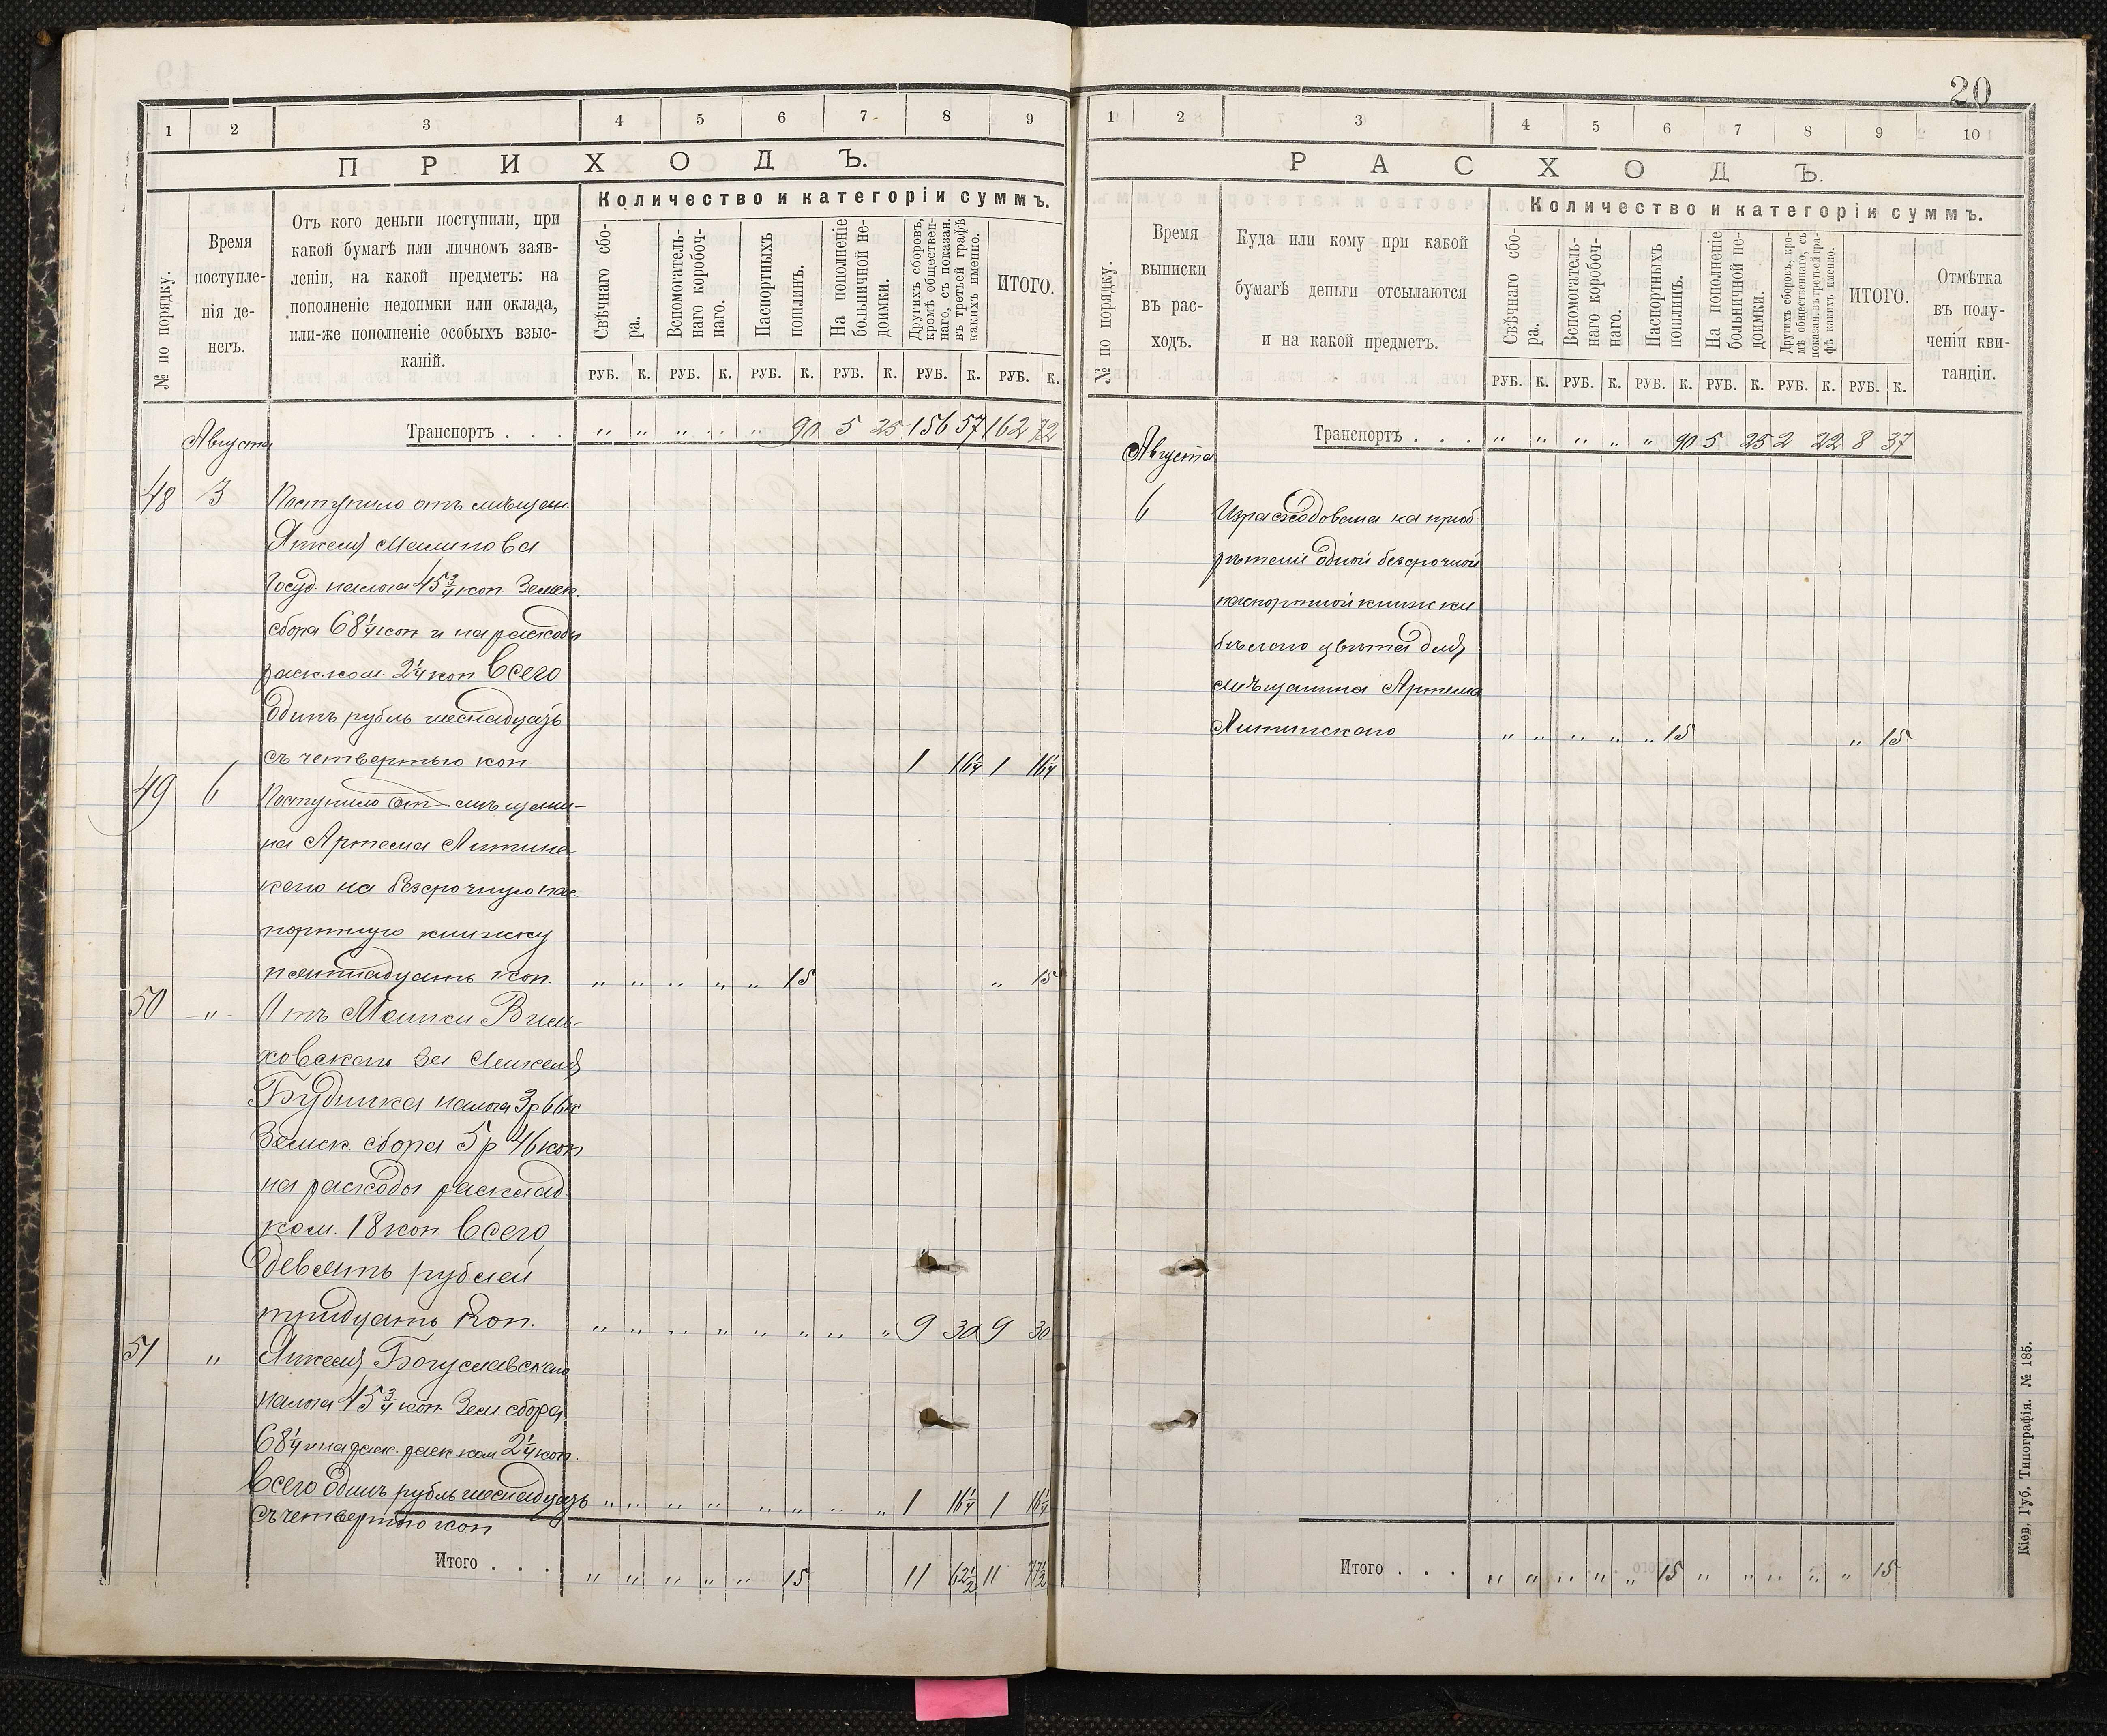 20
1 2 3 4 5 6 7 8 9
ПРИХОДЪ.
№ по порядку.
Время поступле-
нія де-
негъ.
Отъ кого деньги поступили, при
какой бумагѣ или личномъ заяв-
леніи, на какой предметъ: на
пополненіе недоимки или оклада,
или-же пополненіе особыхъ взыс-
каній.
Количество и категоріи суммъ.
Свѣчнаго сбо-
ра.
Вспомогатель-
наго коробоч-
наго.
Паспортныхъ
пошлинъ.
На пополненіе
больничной не-
доимки.
Другихъ сборовъ,
кромѣ обществен-
наго, съ показан.
въ третьей графѣ
какихъ именно.
ИТОГО.
РУБ. К. РУБ. К. РУБ. К. РУБ. К. РУБ. К. РУБ. К.
Транспортъ . . . „ „ „ „ „ 90 5 25 156 57 162 72
Августа
48 3 Поступило отъ мѣщан.
Янкеля Малинова
Госуд. налога 45 3/4 коп Земск.
сбора 68 1/4 коп и на расходы
раск. ком. 2 1/4 коп Всего
Одинъ рубль шеснадцать
съ четвертью коп 1 16 1/4 1 16 1/4
49 6 Поступило от мѣщани-
на Артема Литинс-
каго на безсрочную пас-
портную книжку
пятнадцать коп. „ „ „ „ „ 15 „ 15
50 „ Отъ Мошки Виль-
ховскаго за
Будника налога 3 р 66 к
Земск. сбора 5 р 46 коп
на расходы расклад.
ком. 18 коп. Всего
девять рублей
тридцать коп. „ „ „ „ „ „ „ „ 9 30 9 30
51 „ Янкеля Богуславскаго
налога 45 3/4 коп. Зем. сбора
68 1/4 и на расх. раск ком 2 1/4 коп.
Всего Одинъ рубль шеснадцать „ „ „ „ „ „ „ „ 1 16 1/4 1 16 1/4
съ четвертью коп
Итого . . . „ „ „ „ „ 15 11 62 1/2 11 77 1/2
1 2 3 4 5 6 7 8 9 10
РАСХОДЪ.
№ по порядку.
Время
выписки
въ рас-
ходъ.
Куда или кому при какой
бумагѣ деньги отсылаются
и на какой предметъ.
Количество и категоріи суммъ.
Свѣчнаго сбо-
ра.
Вспомогатель-
наго коробоч-
наго.
Паспортныхъ
пошлинъ.
На пополненіе
больничной не-
доимки.
Другихъ сборовъ, кро-
мѣ общественнаго, съ
показан. въ третьей гра-
фѣ какихъ именно.
ИТОГО.
Отмѣтка
въ полу-
ченіи кви-
танціи.
РУБ. К. РУБ. К. РУБ. К. РУБ. К. РУБ. К. РУБ. К.
Транспортъ . . . „ „ „ „ „ 90 5 25 2 22 8 37
Августа
6 Израсходована на приоб-
рѣтеніе одной безсрочной
паспортной книжки
бѣлаго цвѣта для
мѣщанина Артема
Литинскаго „ „ „ „ „ 15 „ 15
Итого . . . „ „ „ „ „ 15 „ „ „ „ „ 15
Кіев. Губ. Типографія. № 185.